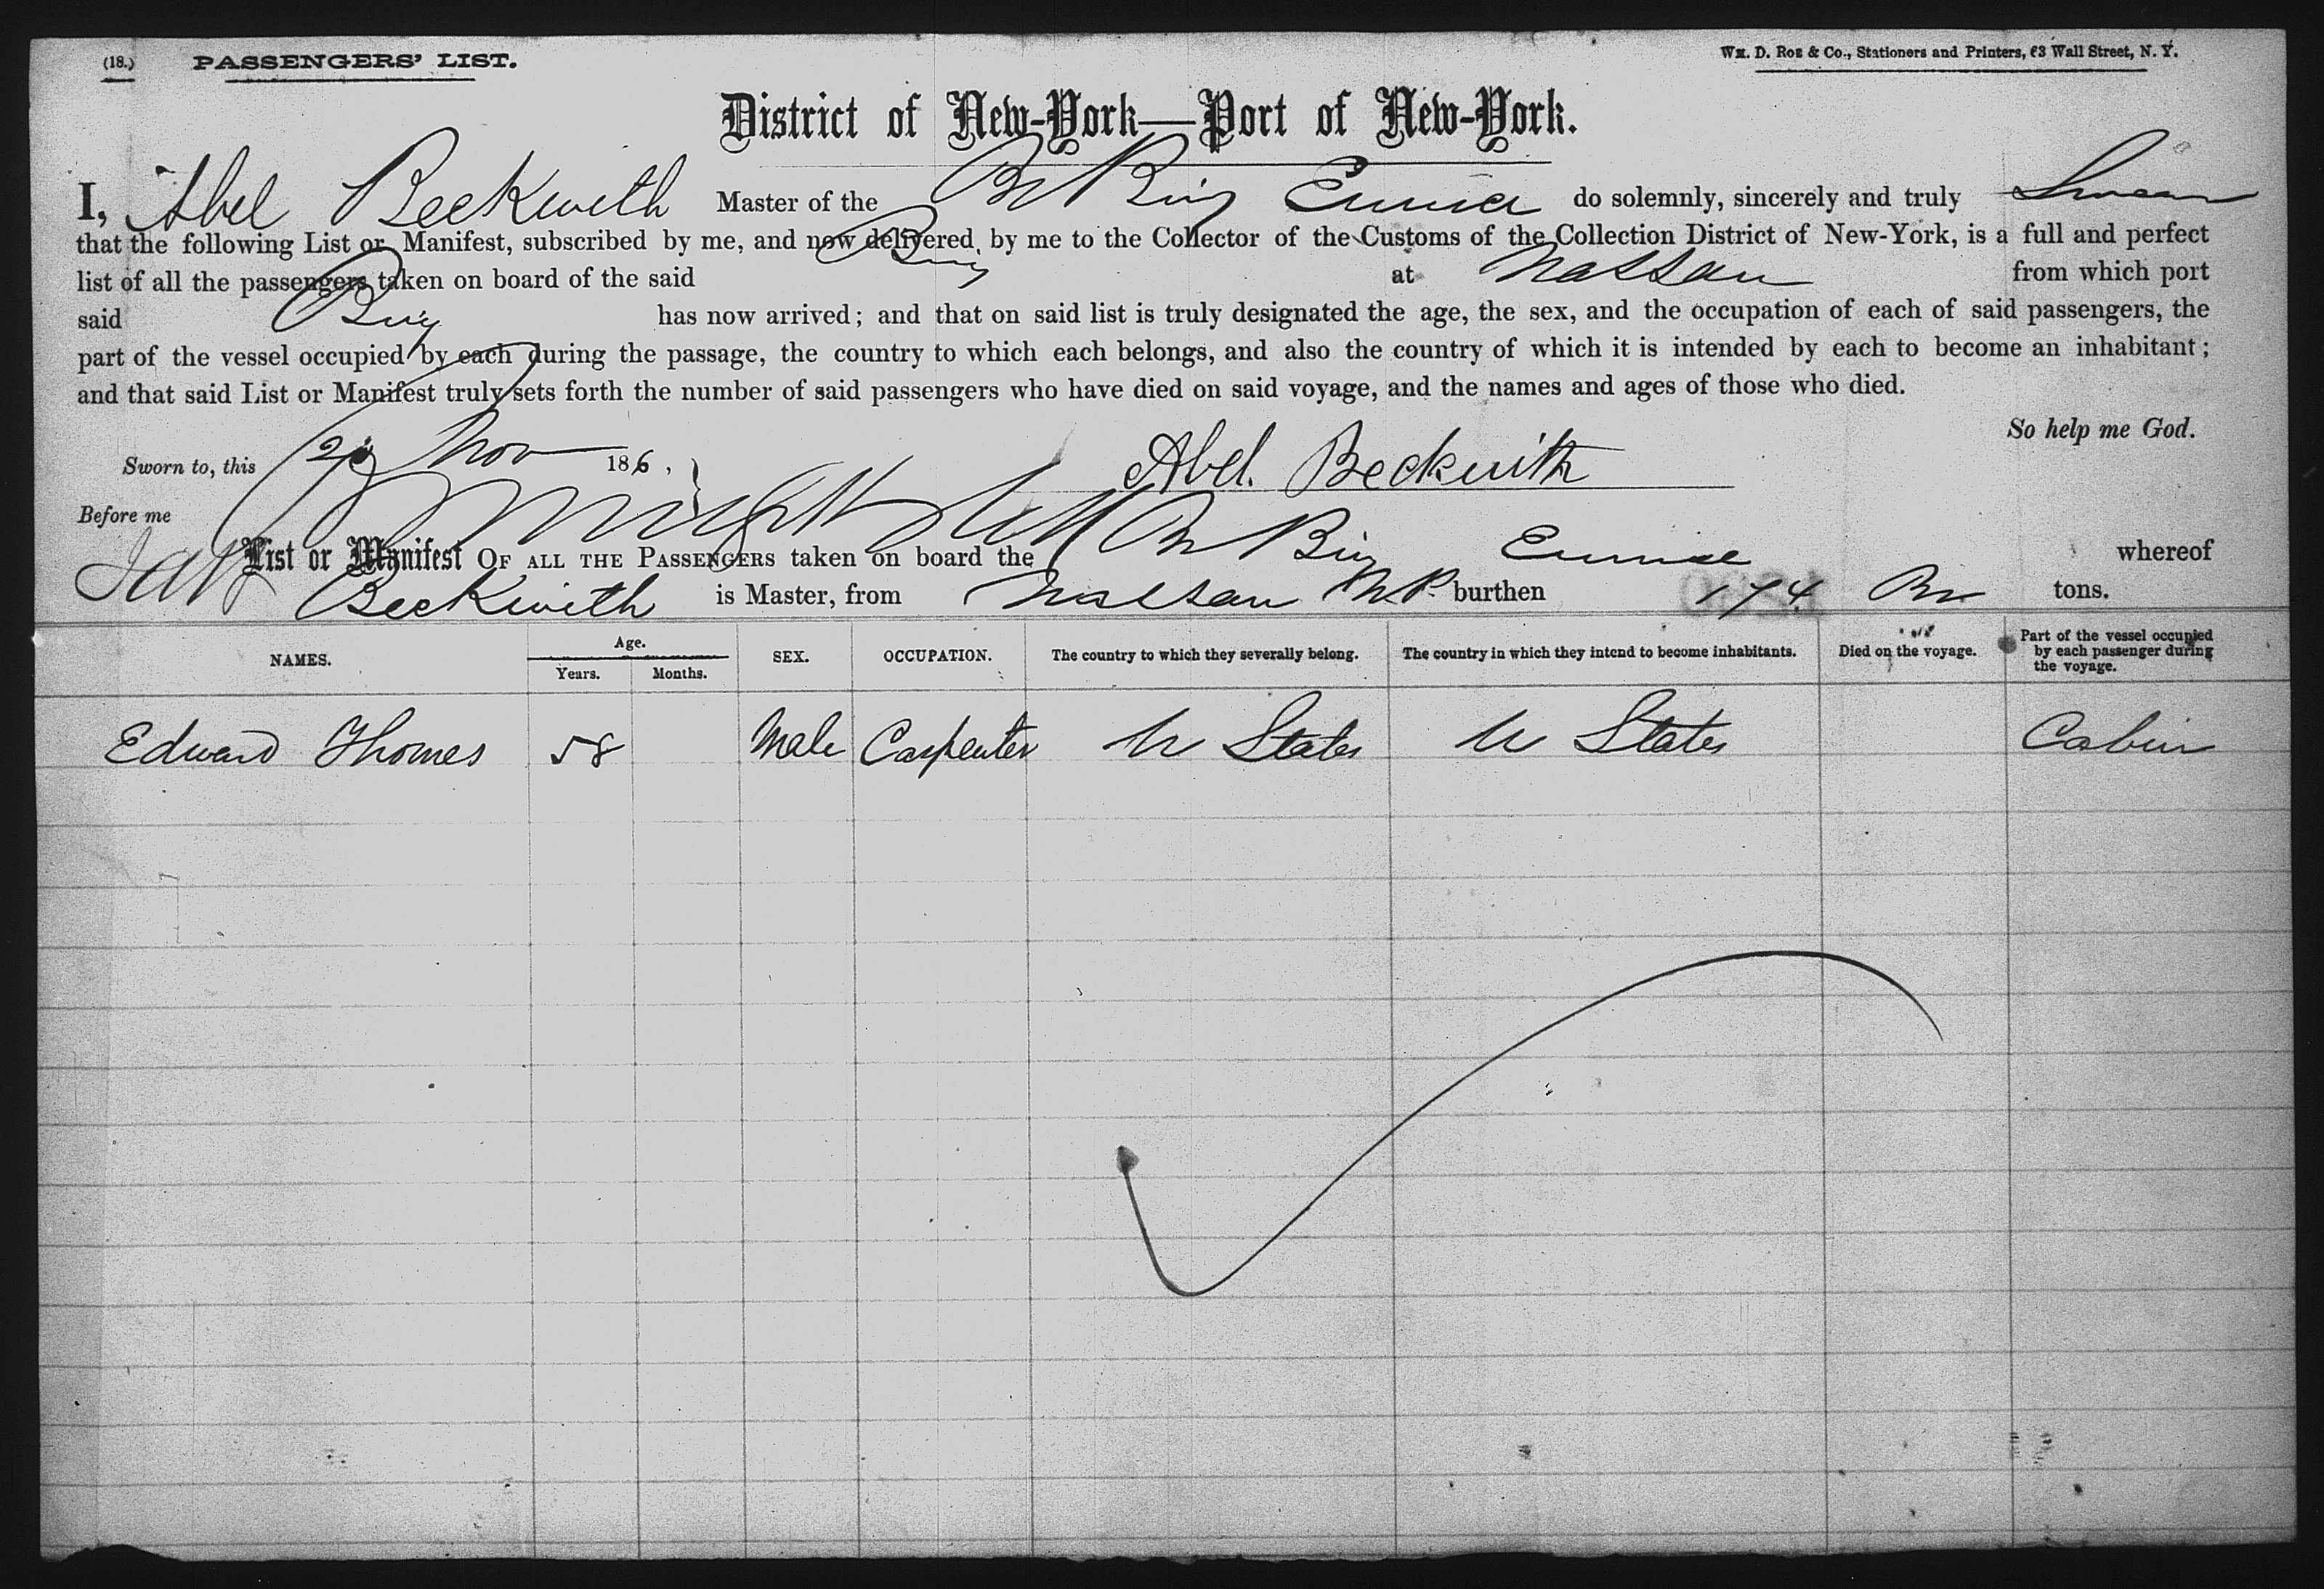 (18.) PASSENGERS' LIST. Wm. D. Roe & Co., Stationers and Printers, 63 Wall Street, N. Y.
District of New-York—Port of New-York.
I, Abel Beckwith Master of the Br Brig Eunice do solemnly, sincerely and truly Swear
that the following List or Manifest, subscribed by me, and now delivered by me to the Collector of the Customs of the Collection District of New-York, is a full and perfect
list of all the passengers taken on board of the said Brig at Nassau from which port
said Brig has now arrived; and that on said list is truly designated the age, the sex, and the occupation of each of said passengers, the
part of the vessel occupied by each during the passage, the country to which each belongs, and also the country of which it is intended by each to become an inhabitant;
and that said List or Manifest truly sets forth the number of said passengers who have died on said voyage, and the names and ages of those who died.
So help me God.
Sworn to, this Nov 186, Abel. Beckwith
Before me
List or Manifest OF ALL THE PASSENGERS taken on board the Br Brig Eunice whereof
Beckwith is Master, from Nassau N.P. burthen 174 Br tons.
NAMES. Age. Years. Months. SEX. OCCUPATION. The country to which they severally belong. The country in which they intend to become inhabitants. Died on the voyage. Part of the vessel occupied by each passenger during the voyage.
Edward Thomes 58 Male Carpenter U States U States Cabin